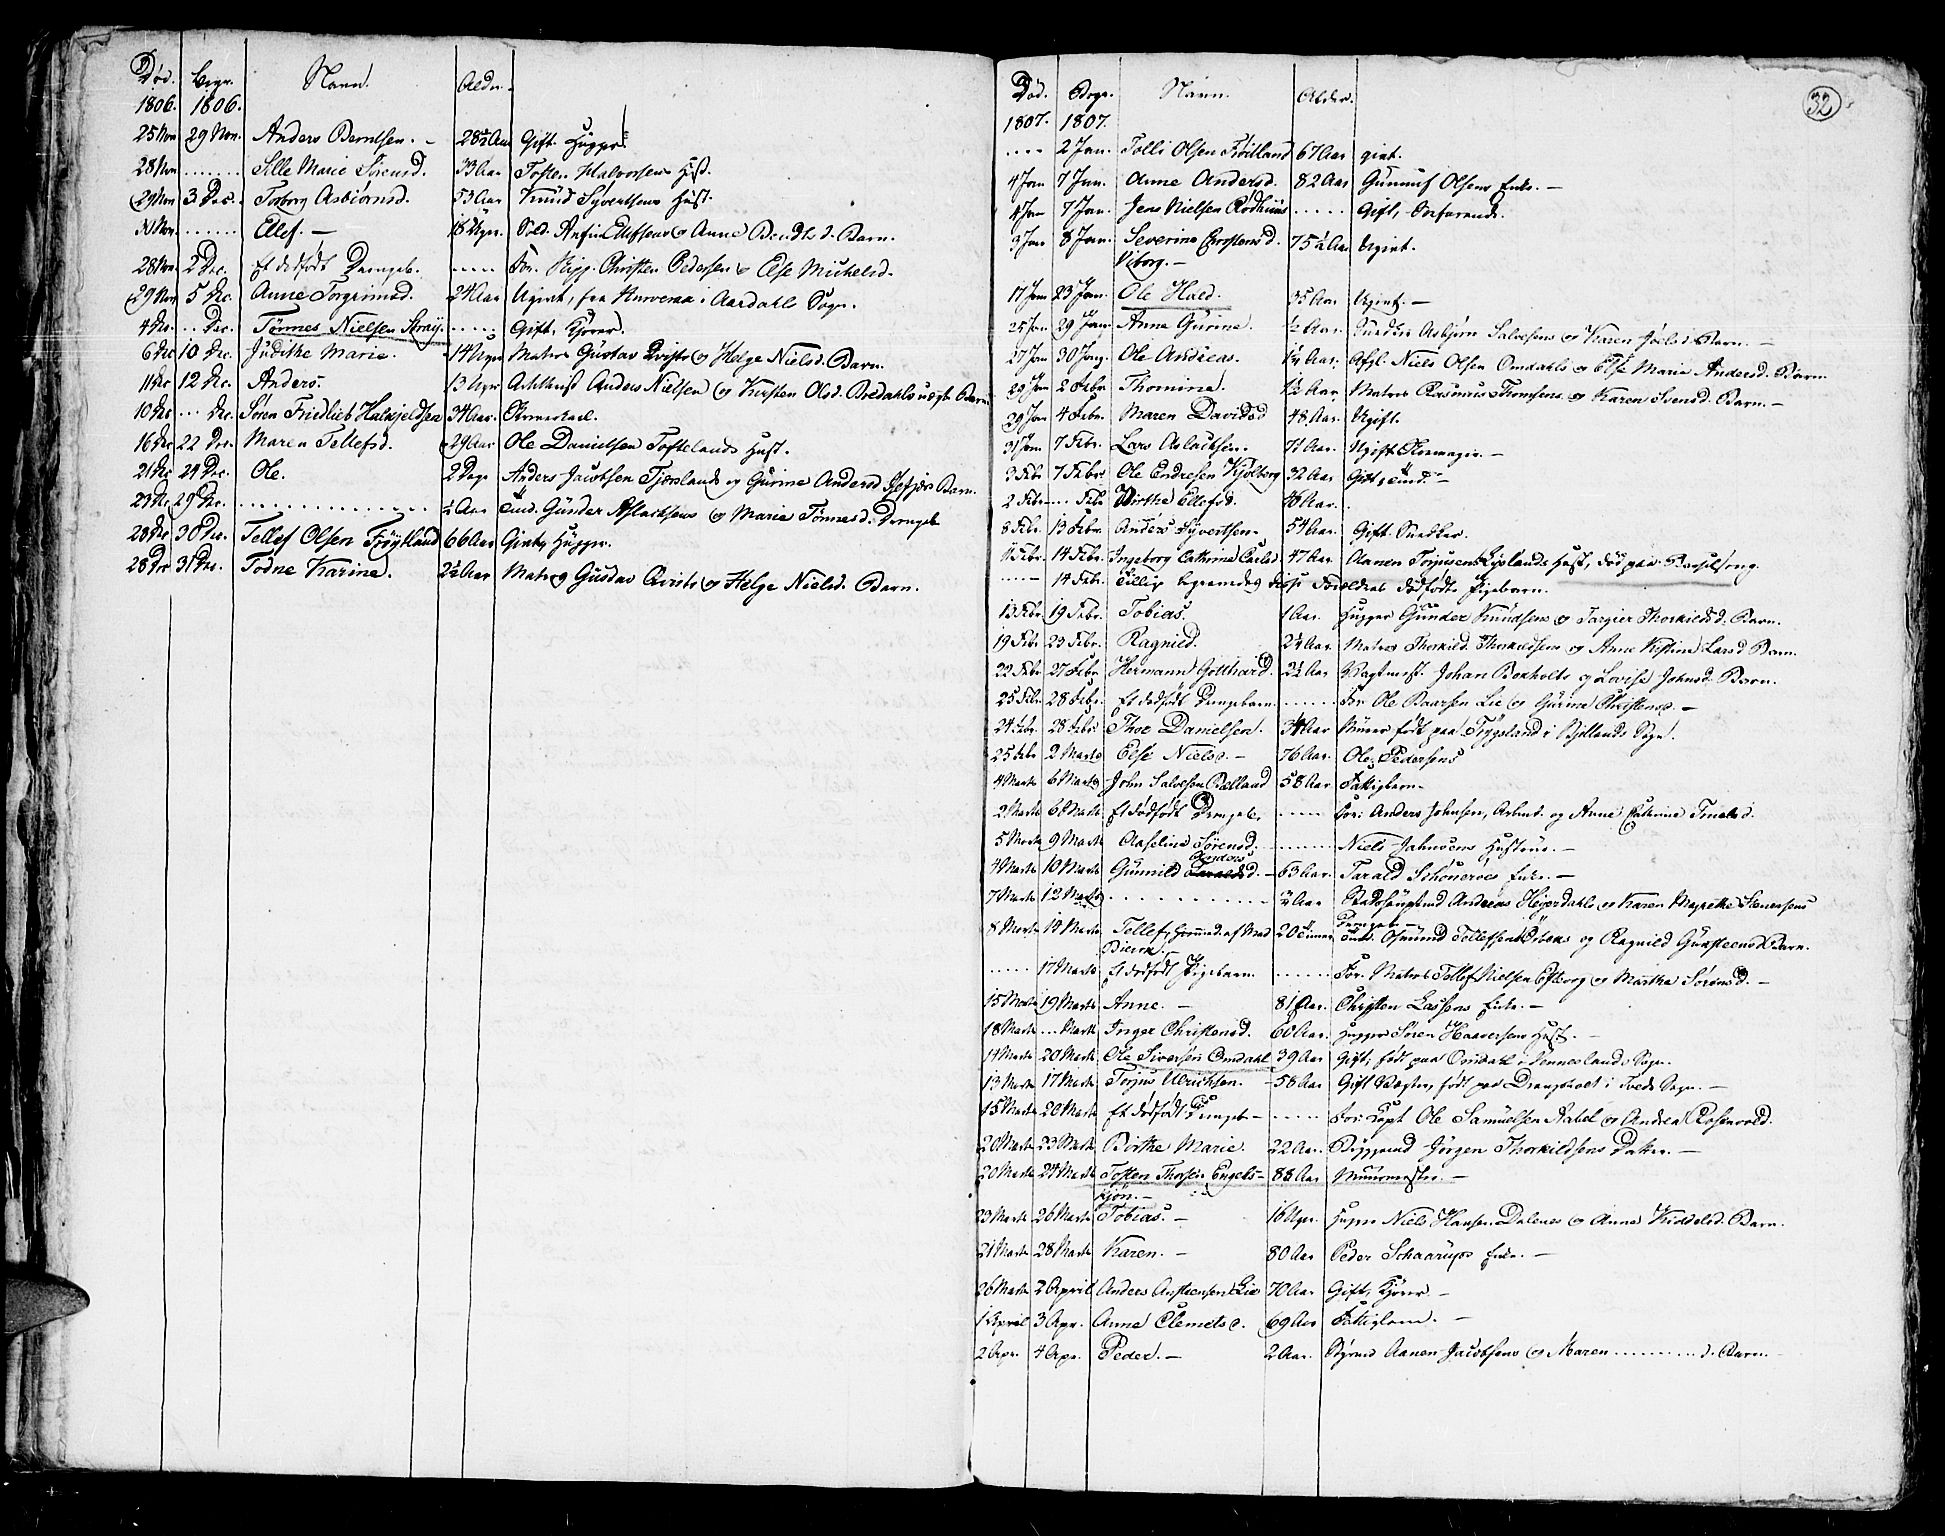 Død. Begr. Navn. Alder.
1806. 1806.
25 Nov 29 Nov. Anders Berntsen. — 28½ Aar Gift. Hugger.
28 Nov ...... Sille Marie Sørensd. 33 Aar Tosten Halvorsens Hust.
29 Nov 3 Dec. Torborg Asbiörnsd. 53 Aar Knud Syvertsens Hust.
30 Nov. ...... Ellef. — 18 Uger. Sold. Anfin Ellefsens og Anne Bendtsd. Barn.
28 Nov. 2 Dec. Et dødfødt Drengeb. ..... For. Christen Pedersen og Else Michelsd.
29 Nov 5 Dec. Anne Torgrimsd. 24 Aar Ugivt, fra i Aardahls Sogn.
4 Dec. ... Dec. Tønnes Nielsen Stray. ..... Gift, Kjører.
6 Dec 10 Dec. Judithe Marie. 14 Uger Matros Gustav Qvists og Helge Nielsd. Barn.
11 Dec 12 Dec. Anders. 13 Uger Anders Nielsen og Kirsten Olsd. Bredahls uægte Barn.
10 Dec ... Dec. Søren Friedlieb 34 Aar.
16 Dec 22 Dec. Maren Tellefsd. 29 Aar Ole Danielsen Toftelands Hust.
21 Dec 24 Dec. Ole. 2 Dage Anders Jacobsen og Gurine Andersd Barn.
23 Dec 29 Dec. .............. ½ Aar Gunder Aslacksens og Marie Tønnesd. Drengeb
28 Dec 30 Dec. Tellef Olsen Frøytland 66 Aar Givt, Hugger.
28 Dec 31 Dec. Todne Karine. 2½ Aar Matros Gustav Qvists og Helge Nielsd. Barn.
32
Død. Begr. Navn. Alder.
1807. 1807.
.... 2 Jan. Tolli Olsen Frøitland 67 Aar givt.
4 Jan 7 Jan. Anne Andersd. 82 Aar Gunnuf Olsens Enke. —
4 Jan 7 Jan. Jens Nielsen Rodhuus ..... Gift,
3 Jan 8 Jan. Severine Christensd. 75½ Aar Ugivt.
Viborg. —
17 Jan 23 Jan. Ole Hald. 35 Aar. Ugivt. —
25 Jan 29 Jan. Anne Gurine. ½ Aar. Snedker Asbjørn Salvesens og Karen Joelsd. Barn. —
27 Jan 30 Jan. Ole Andreas. Niels Olsen Omdahls og Else Marie Andersd. Barn
29 Jan 2 Febr. Thomine. 1½ Aar Matros Rasmus Thomsens og Karen Svensd. Barn. —
29 Jan 4 Febr. Maren Davidsd 48 Aar. Ugift.
31 Jan 7 Febr. Lars Aslacksen. 71 Aar. Ugift —
3 Febr 7 Febr. Ole Endresen Kjolborg 32 Aar Gift,
2 Febr ... Febr Birthe Ellefsd.
8 Febr. 13 Febr. Anders Syvertsen. 54 Aar. Gift Snedker.
11 Febr. 14 Febr. Ingeborg Cathrine Carlsd 47 Aar. Aanen Torjusens Hust, død paa Barselseng.
..... 14 Febr. Tillige begravedes disse Forældres dødfødte Pigebarn.
13 Febr. 19 Febr. Tobias. 1 Aar. Hugger Gunder Knudsens og Targier Thorkildsd. Barn.
19 Febr 23 Febr. Ragnild. 2½ Aar. Matros Thorkild Thorkildsens og Anne Kistine Larsd Barn.
22 Febr 27 Febr Hermann Gotthard. 2½ Aar Vagtmst. Johan Boxholts og Lovise Johnsd. Barn.
25 Febr 28 Febr. Et dødfødt Drengebarn ...... For. Ole Baarsen Lie og Gurine Christensd. —
24 Febr 28 Febr Thor Danielsen. 34 Aar Murer født paa Trygsland i Bjellands Sogn.
25 Febr 2 Marts Else Nielsd. — 76 Aar. Ole Pedersens
4 Marts 6 Marts John Salvesen Rælland 58 Aar
2 Marts 6 Marts Et dødfødt Drengeb. ..... For: Anders Johnsen, Arbmd. og Anne Cathrine
5 Marts 9 Marts Aaseline Sørensd. ........ Niels Jahnsens Hustrue. —
4 Marts 10 Marts Gunnild Anders d. — 63 Aar. Tarald Schoueröes Enke. —
7 Marts 12 Marts ........... ½ Aar Andreas Heyerdahls og Karen Magrethe Steensens
Drengeb.
8 Marts 14 Marts Tellef, 20 Osmund Tellefsens og Ragnild Gunsteensd. Barn.
..... 17 Marts Et dødfødt Pigebarn ...... For. Matros Tellef Nielsen Esborg og Marthe Sørensd. —
15 Marts 19 Marts Anne. — 81 Aar. Christen Lassens Enke. —
18 Marts ... Marts Inger Christensd. 60 Aar. Hugger Søren Haaversens Hust. —
14 Marts 20 Marts Ole Siversen Omdahl 39 Aar Gift, født paa Omdahl i Venneslands Sogn.
13 Marts 17 Marts Torjus Ulrichsen. — 58 Aar Gift Vægter, født paa Drangsholt i Tveds Sogn. —
15 Marts 20 Marts Et dødfødt Drengeb — ..... For: Capt Ole Samuelsen Aabel og Andrea Rosenvold.
20 Marts 23 Marts Birthe Marie. 22 Aar. Jørgen Thorkildsens Datter. —
20 Marts 24 Marts Tosten Thorsen Engels- 88 Aar Muurmester. —
kjøn. —
23 Marts 26 Marts Tobias. — 16 Uger. Hugger Niels Hansen Dalenes og Anne Kiddelsd. Barn.
21 Marts 28 Marts Karen. — 80 Aar Peder Schaarups Enke. —
26 Marts 2 April Anders Austensen Lie 70 Aar Gift, Kjører. —
1 April 3 Apr. Anne Clemetsd. 69 Aar Fattiglem. —
2 Apr. 4 Apr. Peder. — 2 Aar. Aanen Jacobsens og Maren ......... d. Barn